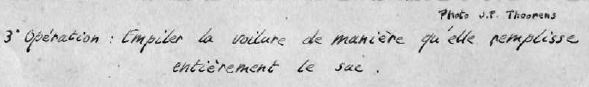 Photo J.P. Thoorens
3° Opération : Empiler la voilure de manière qu'elle remplisse
entièrement le sac.